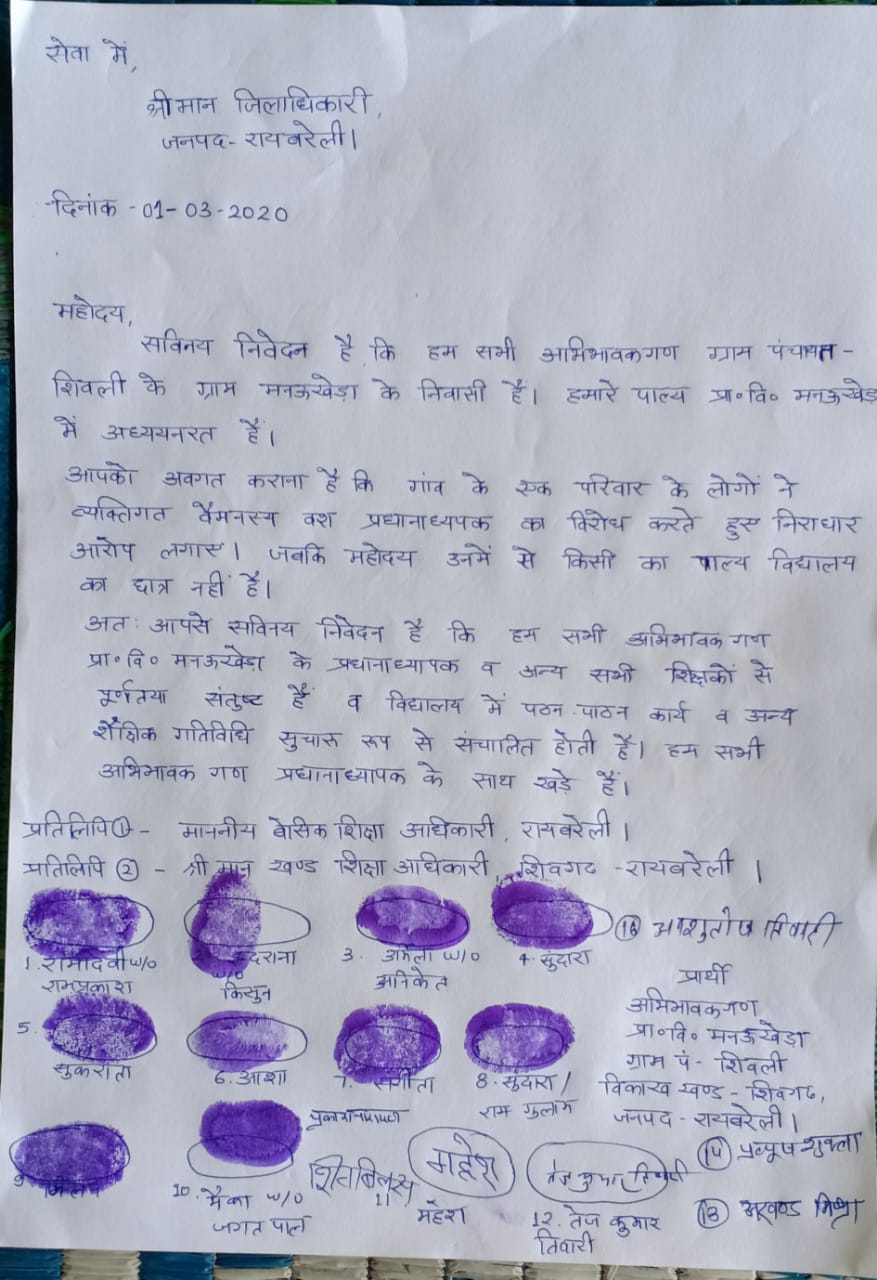 सेवा में,
श्रीमान जिलाधिकारी,
जनपद- रायबरेली।
दिनांक -01-03-2020
महोदय,
सविनय निवेदन है कि हम सभी अभिभावकगण ग्राम पंचायत-
शिवली के ग्राम मनऊखेड़ा के निवासी है। हमारे पाल्य प्रा॰वि॰ मनऊखेड़ा
में अध्ययनरत हैं।
आपको अवगत कराना है कि गांव के एक परिवार के लोगों ने
व्यक्तिगत वैमनस्य वश प्रधानाध्यपक का विरोध करते हुए निराधार
आरोप लगाए। जबकि महोदय उनमें से किसी का पाल्य विद्यालय
का छात्र नहीं है।
अतः आपसे सविनय निवेदन है कि हम सभी अभिभावक गण
प्रा॰वि॰ मनऊखेड़ा के प्रधानाध्यापक व अन्य सभी शिक्षकों से
पूर्णतया संतुष्ट हैं व विद्यालय में पठन-पाठन कार्य व अन्य
शैक्षिक गतिविधि सुचारू रूप से संचालित होती है। हम सभी
अभिभावक गण प्रधानाध्यापक के साथ खड़े हैं।
प्रतिलिपि ① - माननीय बेसिक शिक्षा अधिकारी, रायबरेली।
प्रतिलिपि ② - श्री मान खण्ड शिक्षा अधिकारी, शिवगढ -रायबरेली।
1. रामदेवी w/o
रामप्रकाश
2. w/o
किसुन
3. w/o
अनिकेत
4. सुदारा
⑯ आशुतोष तिवारी
प्रार्थी
अभिभावकगण
प्रा॰वि॰ मनऊखेड़ा
ग्राम पं- शिवली
विकाख खण्ड - शिवगढ,
जनपद - रायबरेली।
5.
6. आशा
7. संगीता
8. सुदारा/
राम गुलाम
9.
10. मैका w/o
जगत पाल
महेश
11
महेश
12. तेज कुमार
तिवारी
⑭ शुक्ला
⑬ अखण्ड मिश्रा